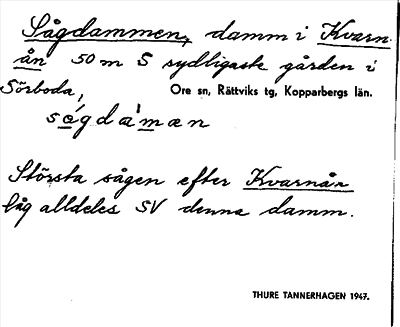 Sågdammen, damm i Kvarn-
ån 50 m S sydligaste gården i
Sörboda,
Ore sn, Rättviks tg, Kopparbergs län.
ságdàman
Största sågen efter Kvarnån
låg alldeles SV denna damm.
THURE TANNERHAGEN 1947.